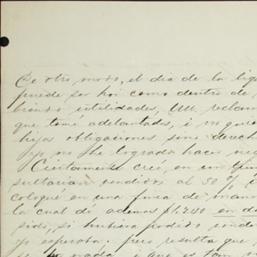 De otro modo, el dia de la liq
puede ser hoi como dentro de
biendo utilidades, UU. velan
que tomé adelantados, i ni quie
hijos obligaciones sino derech
yo no he logrado hacer neg
Ciertamente creí, en un tiem
sultarian vendidos al 50%
coloqué en una finca de
la cual di además $1,200 en di
pido, si hubiera podido
yo esperaba: pues resulta que